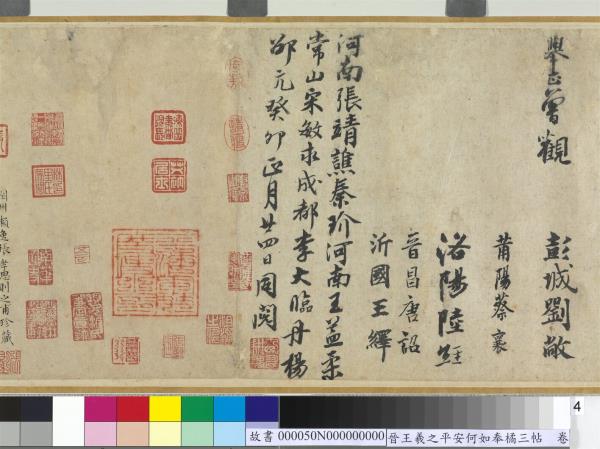 舉正曾觀
彭城劉敞
莆陽蔡襄
洛陽陸經
晉昌唐詔
沂國王繹
河南張靖譙秦玠河南王益柔
常山宋敏求成都李大臨丹楊
邵亢癸卯正月廿四日同閱
張孝思則之甫珍藏
4
故書 000050N000000000 晉王羲之平安何如奉橘三帖 卷